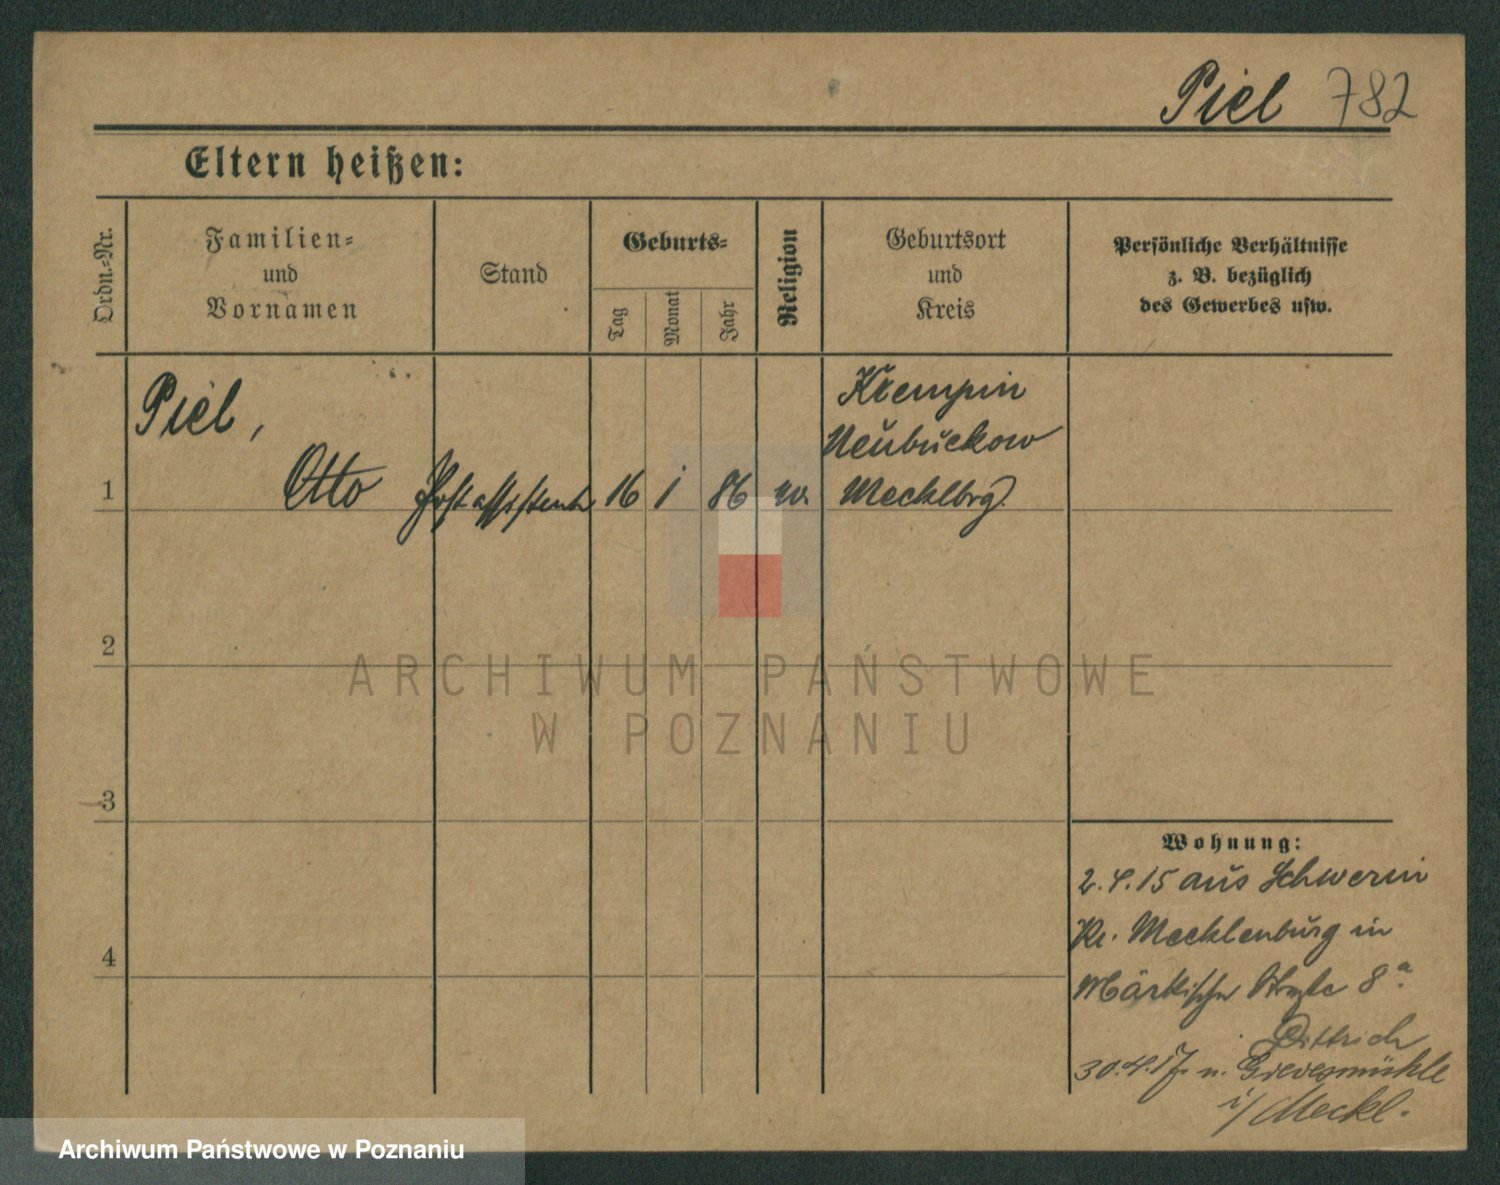 Piel 782
Eltern heißen:
Ordn.-Nr.
Familien-
und
Vornamen
Stand
Geburts-
Tag
Monat
Jahr
Religion
Geburtsort
und
Kreis
Persönliche Verhältnisse
z. B. bezüglich
des Gewerbes usw.
Piel,
1 Otto Postassistent 16 1 86
Krempin
Neubuckow
Mecklbrg.
2
3
4
Wohnung:
2.4.15 aus Schwerin
Kr. Mecklenburg in
Märkische Straße 8a.
Dittrich
30.4.17. n. Grevesmühle
i/Meckl.
ARCHIWUM PAŃSTWOWE
W POZNANIU
Archiwum Państwowe w Poznaniu